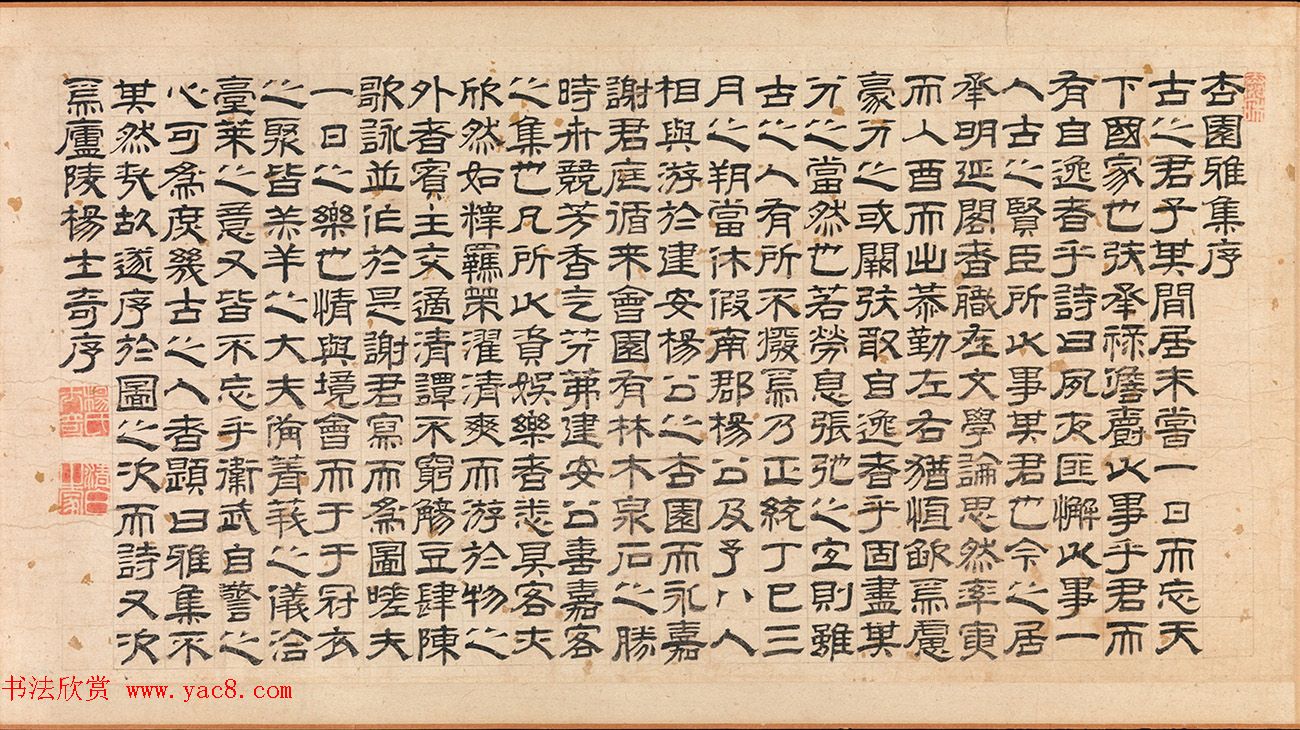 杏園雅集序
古之君子其閒居未嘗一日而忘天
下國家也矧承祿儋爵以事乎君而
有自逸者乎詩曰夙夜匪懈以事一
人古之賢臣所以事其君也今之居
承明延閣者職在文學論思然率寅
而入酉而出恭勤左右猶恒歉焉慮
豪分之或闕矧敢自逸者乎固盡其
分之當然也若勞息張弛之宜則雖
古之人有所不癈焉乃正統丁巳三
月之朔當休假南郡楊公及予八人
相與游於建安楊公之杏園而永嘉
謝君庭循来會園有林木泉石之勝
時卉競芳香氣芬茀建安公喜嘉客
之集也凡所以資娛樂者悉具客夫
欣然如釋羈絷濯清爽而游於物之
外者賓主交適清譚不窮觴豆肆陳
歌詠並作於是謝君寫而為圖嗟夫
一日之樂也情與境會而于于冠衣
之聚皆羔羊之大夫脩菁莪之儀洽
臺萊之意又皆不忘乎衛武自警之
心可為庶幾古之人者題曰雅集不
其然哉故遂序於圖之次而詩又次
焉廬陵楊士奇序
书法欣赏 www.yac8.com